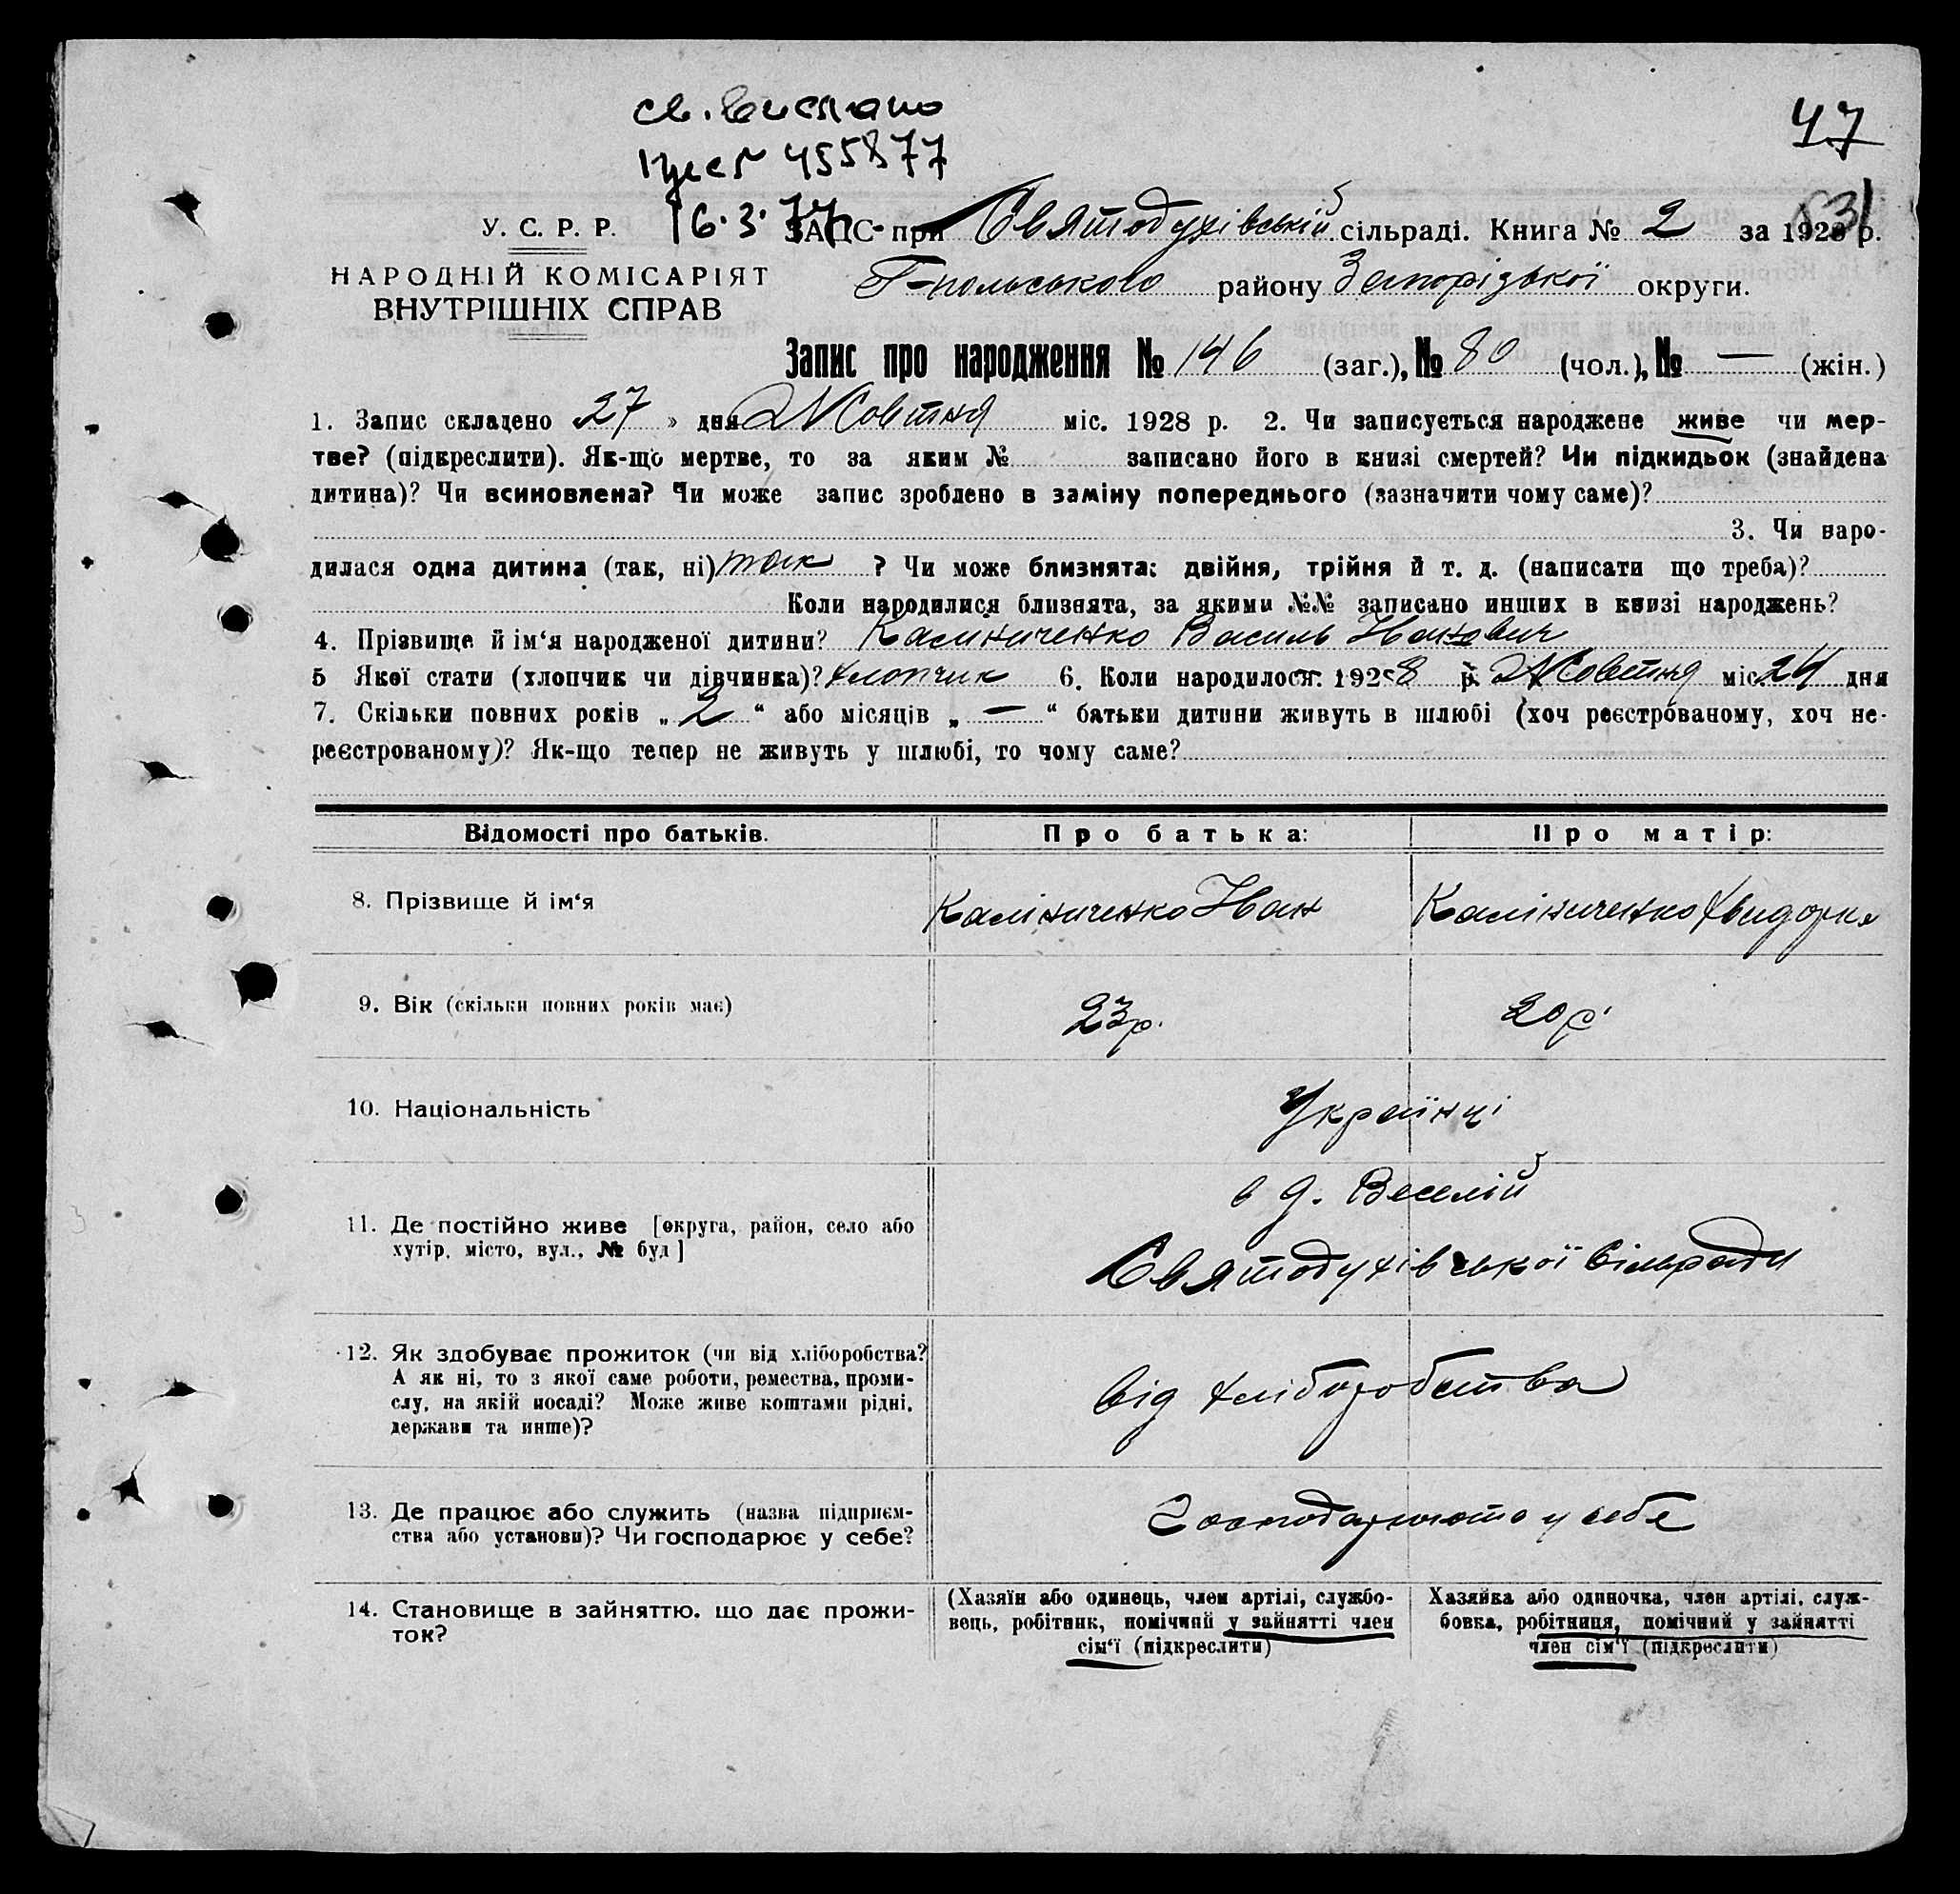 св. вислано
47
455877
16.3.77
У. С. Р. Р.
НАРОДНІЙ КОМІСАРІЯТ
ВНУТРІШНІХ СПРАВ
ЗАГС при Святодухівській сільраді. Книга № 2 за 1928 р.
Г-польського району Запорізької округи.
Запис про народження № 146 (заг.), № 80 (чол.), № — (жін.)
1. Запис складено 27 » дня Жовтня міс. 1928 р. 2. Чи записується народжене живе чи мер-
тве? (підкреслити). Як-що мертве, то за яким № записано його в книзі смертей? Чи підкидьок (знайдена
дитина)? Чи всиновлена? Чи може запис зроблено в заміну попереднього (зазначити чому саме)?
3. Чи наро-
дилася одна дитина (так, ні) так ? Чи може близнята: двійня, трійня й т. д. (написати що треба)?
Коли народилися близнята, за якими №№ записано инших в книзі народжень?
4. Прізвище й ім‘я народженої дитини? Калиниченко Василь Иванович
5 Якої стати (хлопчик чи дівчинка)? хлопчик 6. Коли народилося: 1928 р. Жовтня міс. 24 дня
7. Скільки повних років „ 2 “ або місяців „ — “ батьки дитини живуть в шлюбі (хоч реєстрованому, хоч не-
реєстрованому)? Як-що тепер не живуть у шлюбі, то чому саме?
Відомості про батьків.
Про батька:
Про матір:
8. Прізвище й ім‘я
Калініченко Иван
Калініченко Хвидорка
9. Вік (скільки повних років має)
23р.
20р.
10. Національність
Українці
11. Де постійно живе [округа, район, село або
хутір, місто, вул., № буд]
в д. Веселій
Святодухівської Сільради
12. Як здобуває прожиток (чи від хліборобства?
А як ні, то з якої саме роботи, ремества, проми-
слу, на якій посаді? Може живе коштами рідні,
держави та инше)?
від хліборобства
13. Де працює або служить (назва підприєм-
ства або установи)? Чи господарює у себе?
Господарюють у себе
14. Становище в зайняттю, що дає прожи-
ток?
(Хазяїн або одинець, член артілі, службо-
вець, робітник, помічний у зайнятті член
сім‘ї (підкреслити)
Хазяйка або одиночка, член артілі, служ-
бовка, робітниця, помічний у зайнятті
член сім‘ї (підкреслити)